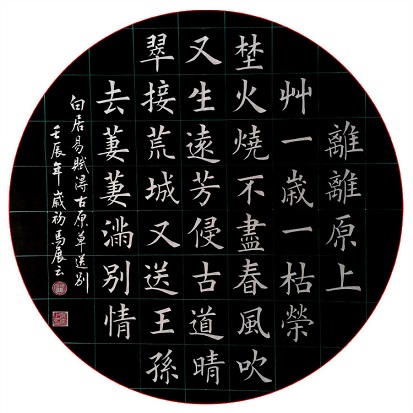 離離原上
艸一歳一枯榮
埜火燒不盡春風吹
又生遠芳侵古道晴
翠接荒城又送王孫
去萋萋滿別情
白居易賦得古原草送別
壬辰年歲初馬展云